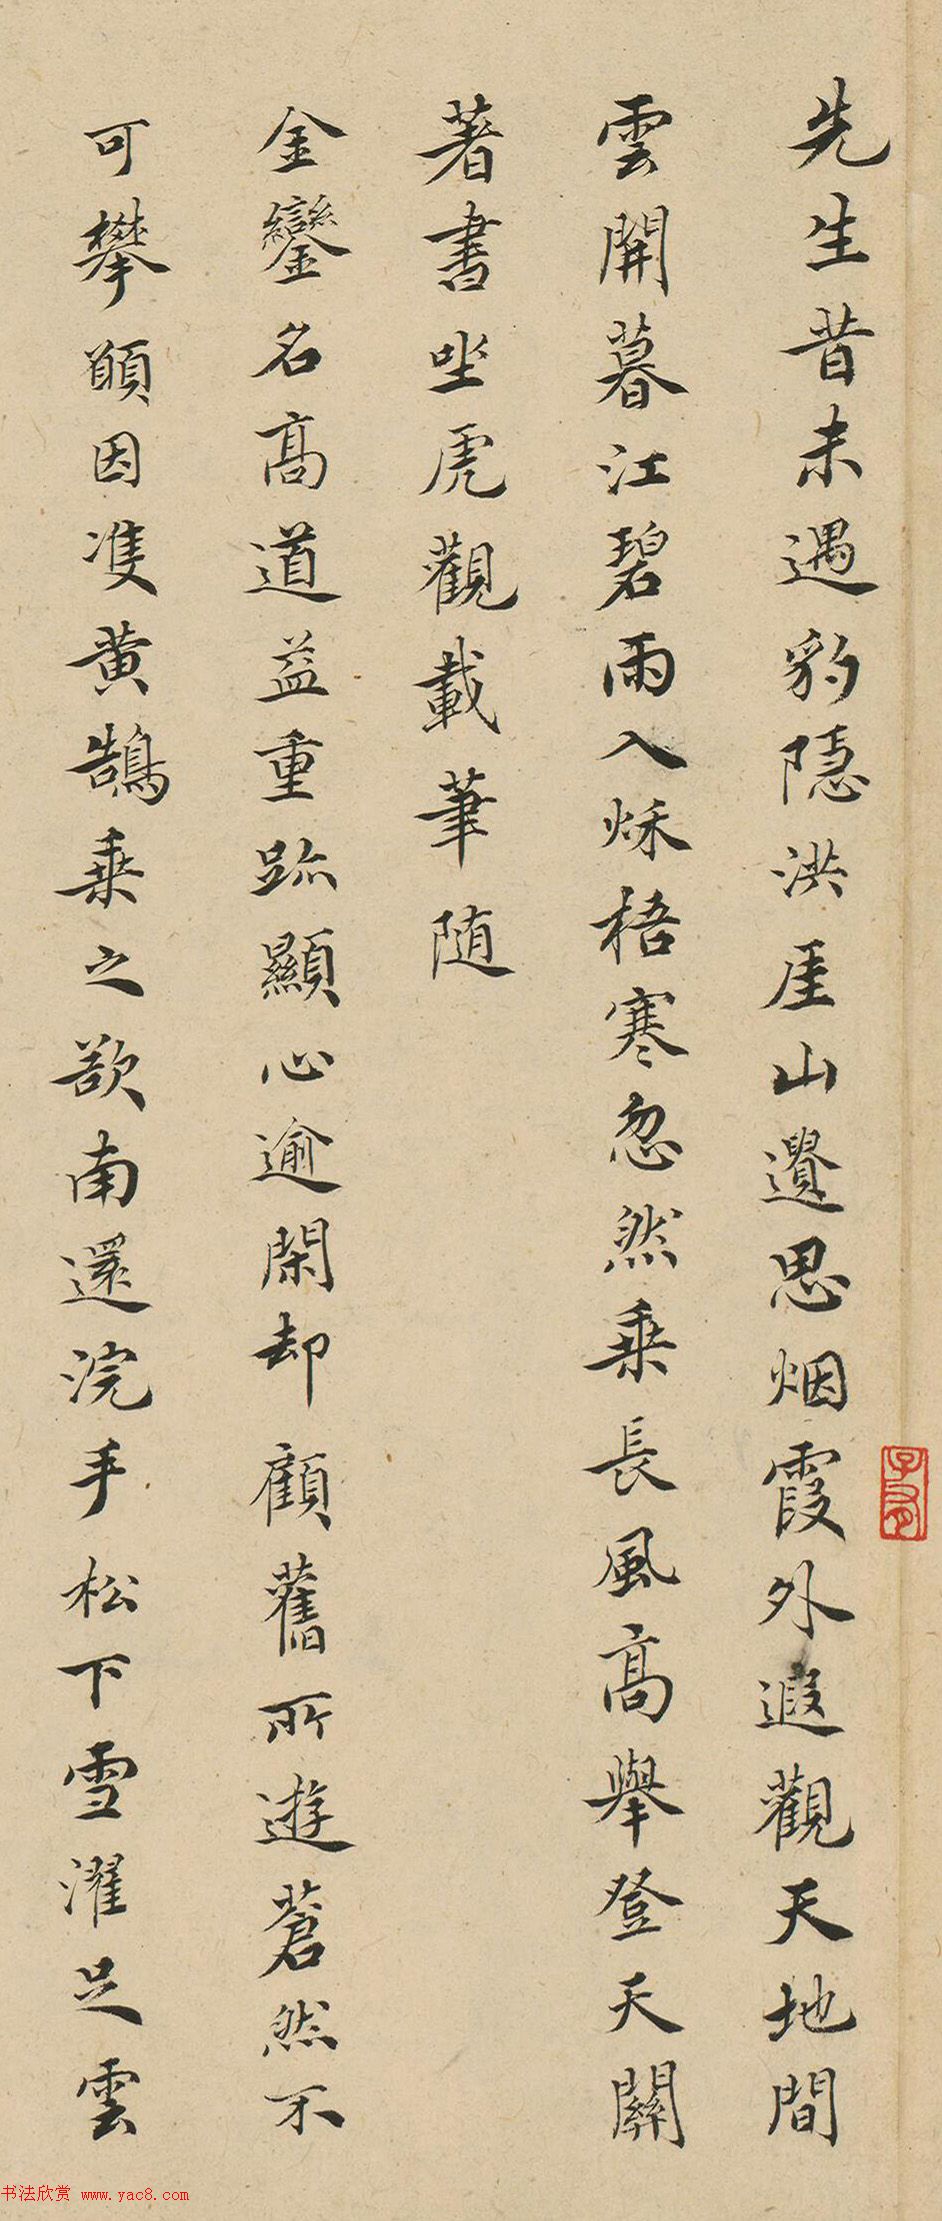 先生昔未遇豹隱洪厓山邊思烟霞外遐觀天地間
雲開暮江碧雨入秌梧寒忽然乗長風髙舉登天關
著書坐虎觀載筆随
金鑾名髙道益重跡顯心逾閑却顧舊所遊蒼然不
可攀願因䨇黄鵠乗之欲南還浣手松下雪濯足雲
书法欣赏 www.yac8.com